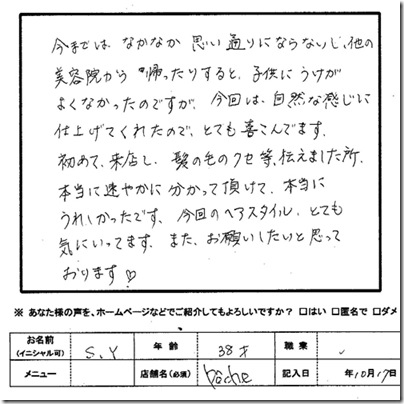 今までは、なかなか 思い通りにならないし、他の
美容院から 帰ったりすると、子供にうけが
よくなかったのですが、今回は、自然な感じに
仕上げてくれたので、とても喜こんでます。
初めて、来店し、髪の毛のクセ等、伝えました所、
本当に速やかに分かって頂けて、本当に
うれしかったです。今回のヘアスタイル、とても
気にいってます。また、お願いしたいと思って
おります♡
※ あなた様の声を、ホームページなどでご紹介してもよろしいですか？ □はい □匿名で □ダメ
お名前 (イニシャル可) S.Y 年齢 38才 職業
メニュー 店舗名(必須) 記入日 年10月17日